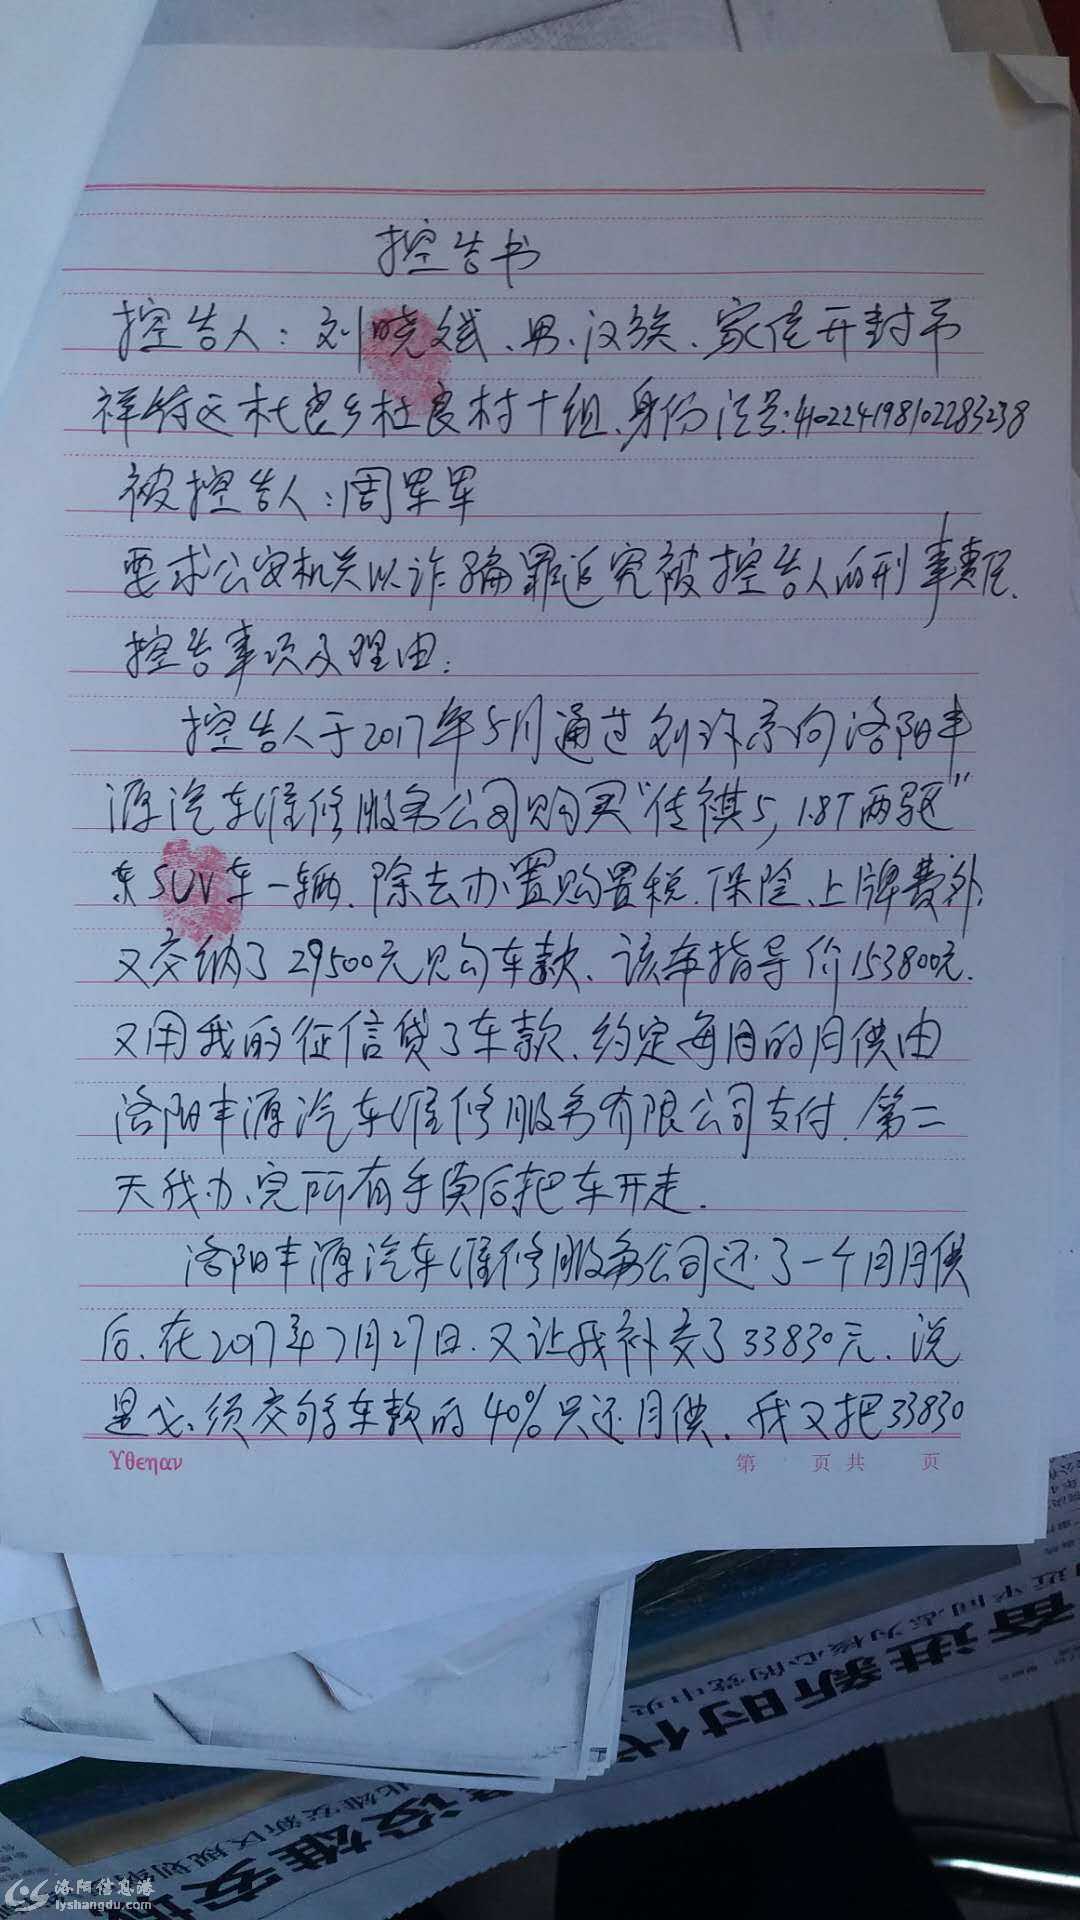 控告书
控告人：刘晓斌、男、汉族、家住开封市
祥符区杜良乡杜良村十组、身份证号：410224198102283238
被控告人：周军军
要求公安机关以诈骗罪追究被控告人的刑事责任.
控告事项及理由：
控告人于2017年5月通过刘许亲向洛阳丰
源汽车维修服务公司购买“传祺5，1.8T两驱”
SUV车一辆、除去办置购置税.保险、上牌费外、
又交纳了29500元购车款、该车指导价153800元.
又用我的征信贷了车款、约定每月的月供由
洛阳丰源汽车维修服务有限公司支付.第二
天我办完所有手续后把车开走.
洛阳丰源汽车维修服务公司还了一个月月供
后、在2017年7月27日.又让我补交了33830元、说
是必须交够车款的40%只还月供、我又把33830
Yθεηαν
第 页 共 页
奋进新时代
洛阳信息港
lyshangdu.com